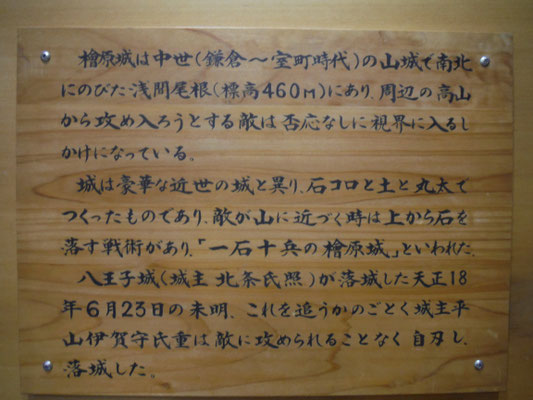 檜原城は中世(鎌倉〜室町時代)の山城で南北
にのびた浅間尾根(標高460m)にあり、周辺の高山
から攻め入ろうとする敵は否応なしに視界に入るし
かけになっている。
城は豪華な近世の城と異り、石コロと土と丸太で
つくったものであり、敵が山に近づく時は上から石を
落す戦術があり、「一石十兵の檜原城」といわれた。
八王子城(城主 北条氏照)が落城した天正18
年6月23日の未明、これを追うかのごとく城主平
山伊賀守氏重は敵に攻められることなく自刃し、
落城した。